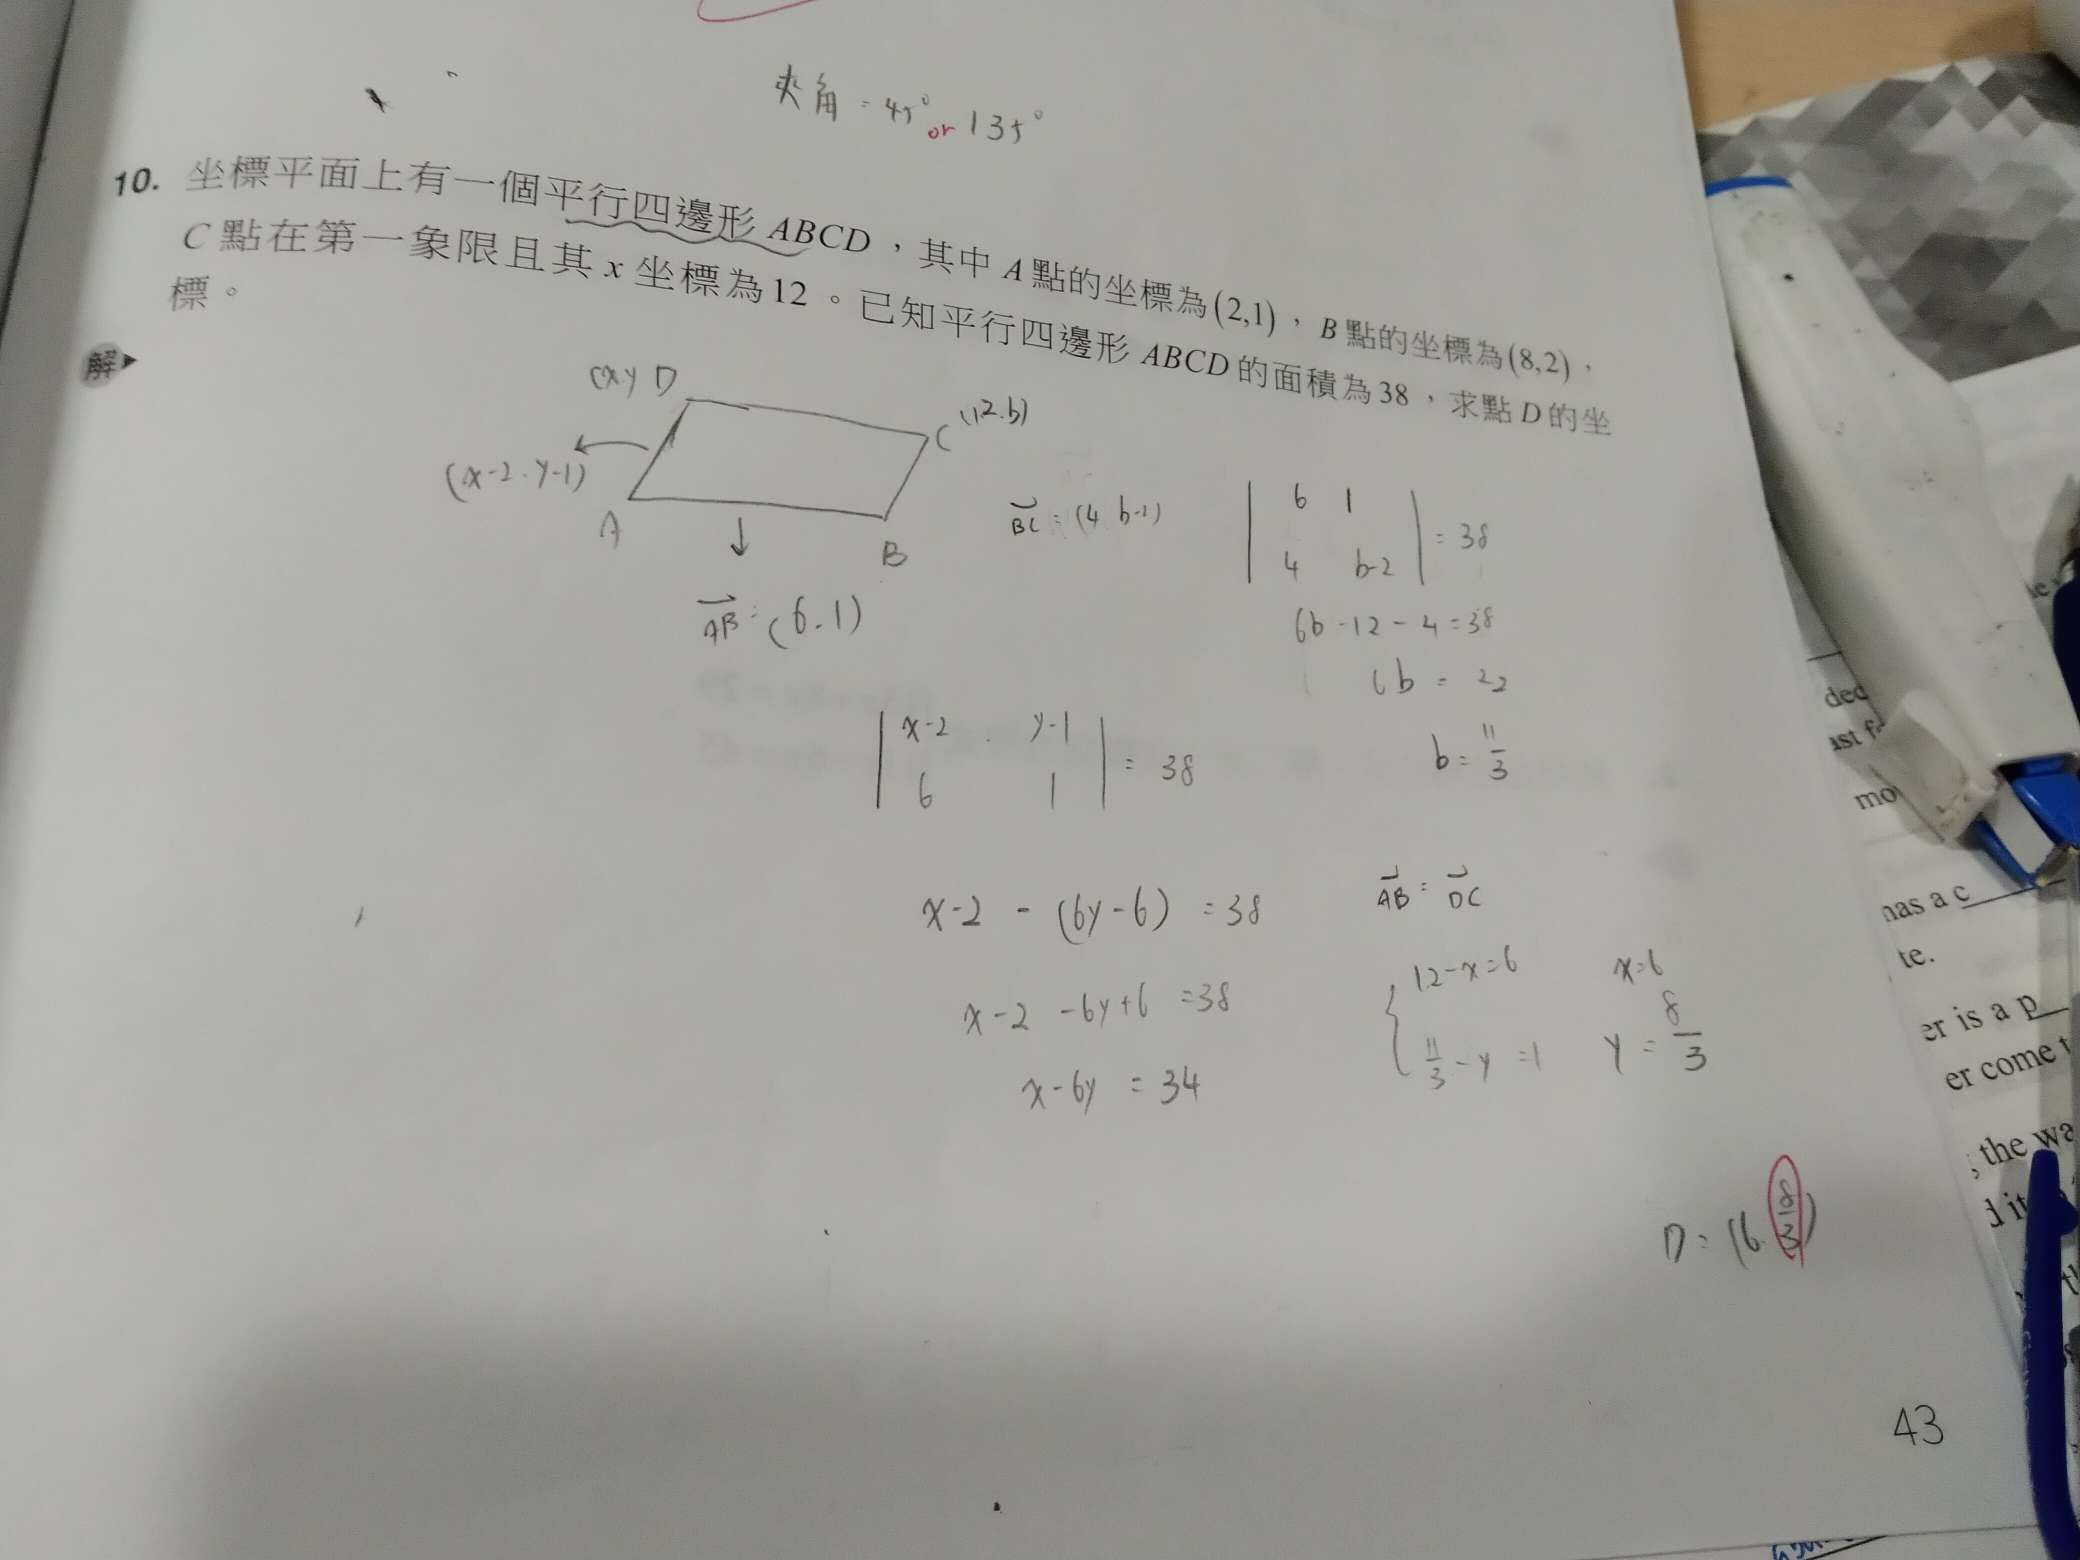 夾角 = 45° or 135°
10. 坐標平面上有一個平行四邊形 ABCD,其中 A 點的坐標為(2,1),B 點的坐標為(8,2),
C 點在第一象限且其 x 坐標為12。已知平行四邊形 ABCD 的面積為38,求點 D 的坐
標。
解
(x.y) D
C (12.b)
(x-2.y-1)
A
B
BC = (4.b-2)
AB = (6.1)
| 6 1 |
| 4 b-2 | = 38
6b -12 - 4 = 38
6b = 22
b = 11/3
| x-2 y-1 |
| 6 1 | = 38
x-2 - (6y-6) = 38
x-2 -6y+6 = 38
x-6y = 34
AB = DC
12-x=6 x=6
11/3 - y = 1 y = 8/3
D = (6. 8/3)
43
ded
mo
has a c
te.
er is a p
er come t
; the wa
d it